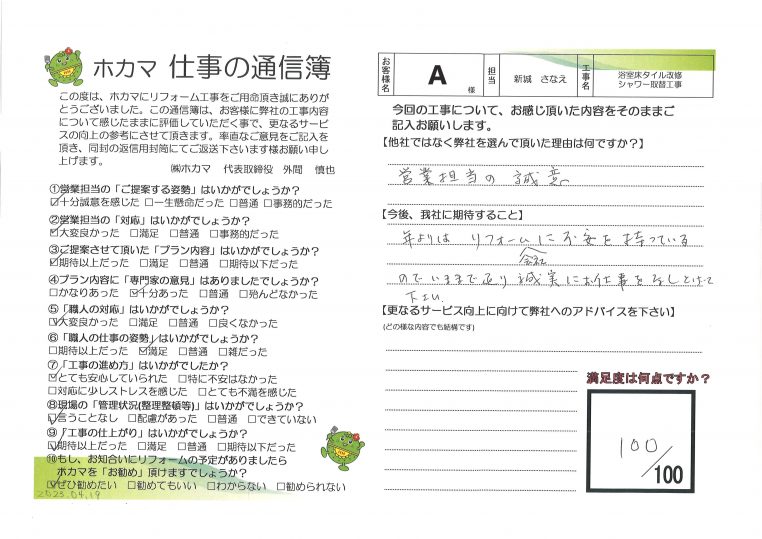 ホカマ 仕事の通信簿
この度は、ホカマにリフォーム工事をご用命頂き誠にありが
とうございました。この通信簿は、お客様に弊社の工事内容
について感じたままに評価していただく事で、更なるサービ
スの向上の参考にさせて頂きます。率直なご意見をご記入を
頂き、同封の返信用封筒にてご返送下さいます様お願い申し
上げます。
㈱ホカマ 代表取締役 外間 慎也
①営業担当の「ご提案する姿勢」はいかがでしょうか?
☑十分誠意を感じた □一生懸命だった □普通 □事務的だった
②営業担当の「対応」はいかがでしょうか?
☑大変良かった □満足 □普通 □事務的だった
③ご提案させて頂いた「プラン内容」はいかがでしょうか?
☑期待以上だった □満足 □普通 □期待以下だった
④プラン内容に「専門家の意見」はありましたでしょうか?
□かなりあった ☑十分あった □普通 □殆んどなかった
⑤「職人の対応」はいかがでしょうか?
☑大変良かった □満足 □普通 □良くなかった
⑥「職人の仕事の姿勢」はいかがでしょうか?
□期待以上だった ☑満足 □普通 □雑だった
⑦「工事の進め方」はいかがでしたか?
☑とても安心していられた □特に不安はなかった
□対応に少しストレスを感じた □とても不満を感じた
⑧現場の「管理状況(整理整頓等)」はいかがでしょうか?
☑言うことなし □配慮があった □普通 □できていない
⑨「工事の仕上がり」はいかがでしょうか?
☑期待以上だった □満足 □普通 □期待以下だった
⑩もし、お知合いにリフォームの予定がありましたら
ホカマを「お勧め」頂けますでしょうか?
☑ぜひ勧めたい □勧めてもいい □わからない □勧められない
2023.04.19
お客様名 A 様 担当 新城 さなえ 工事名 浴室床タイル改修
シャワー取替工事
今回の工事について、お感じ頂いた内容をそのままご
記入お願いします。
【他社ではなく弊社を選んで頂いた理由は何ですか?】
営業担当の誠意
【今後、我社に期待すること】
年よりは リフォームに不安を持っている
会社
のでいままで通り 誠実にお仕事をなしとげて
下さい.
【更なるサービス向上に向けて弊社へのアドバイスを下さい】
(どの様な内容でも結構です)
満足度は何点ですか?
100
/100